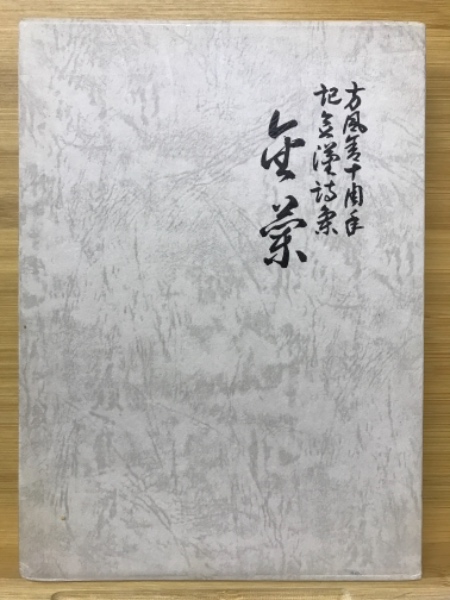 方風十周年
記念漢詩集
金蘭